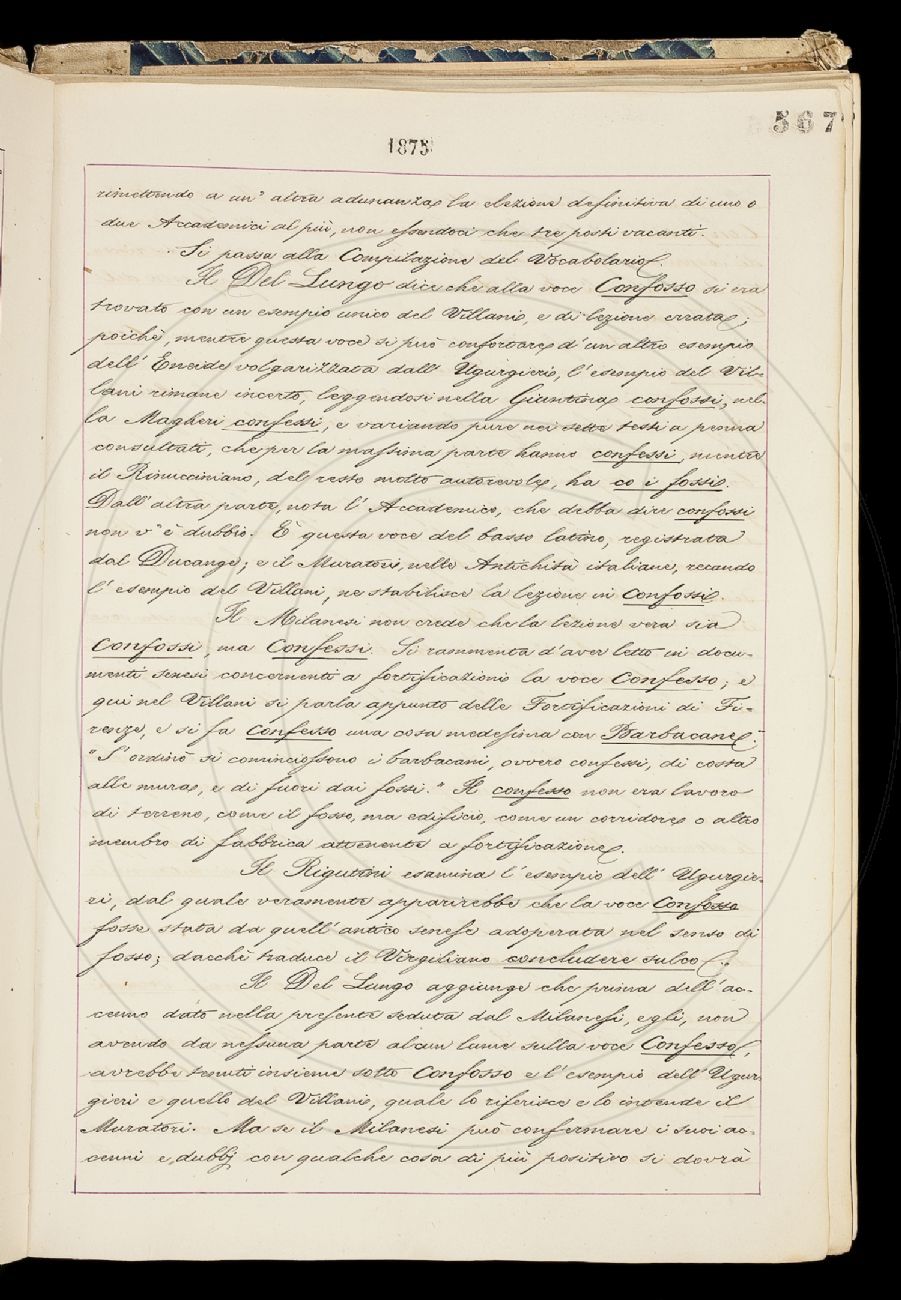 567
1875
rimettendo a un' altra adunanza la elezione definitiva di uno o
due Accademici al più, non essendoci che tre posti vacanti.
Si passa alla Compilazione del Vocabolario.
Il Del Lungo dice che alla voce Confosso si era
trovato con un esempio unico del Villani, e di lezione errata;
poichè, mentre questa voce si può confortare d'un altro esempio
dell' Eneide volgarizzata dall' Ugurgieri, l'esempio del Vil-
lani rimane incerto, leggendosi nella Giuntina confossi, nel-
la Magheri confessi, e variando pure nei sette testi a penna
consultati, che per la massima parte hanno confessi, mentre
il Rinucciniano, del resto molto autorevole, ha co i fossi.
Dall' altra parte, nota l' Accademico, che debba dire confossi
non v' è dubbio. È questa voce del basso latino, registrata
dal Ducange; e il Muratori, nelle Antichità italiane, recando
l' esempio del Villani, ne stabilisce la lezione in Confossi.
Il Milanesi non crede che la lezione vera sia
Confossi, ma Confessi. Si rammenta d'aver letto in docu-
menti senesi concernenti a fortificazioni la voce Confesso; e
qui nel Villani si parla appunto delle Fortificazioni di Fi-
renze, e si fa Confesso una cosa medesima con Barbacane:
"S' ordinò si cominciassono i barbacani, ovvero confessi, di costa
alle mura, e di fuori dai fossi." Il confesso non era lavoro
di terreno, come il fosso, ma edificio, come un corridore o altro
membro di fabbrica attenente a fortificazione.
Il Rigutini esamina l' esempio dell' Ugurgie-
ri, dal quale veramente apparirebbe che la voce Confosso
fosse stata da quell' antico senese adoperata nel senso di
fosso; dacchè traduce il Virgiliano concludere sulco.
Il Del Lungo aggiunge che prima dell' ac-
cenno dato nella presente seduta dal Milanesi, egli, non
avendo da nessuna parte alcun lume sulla voce Confesso,
avrebbe tenuti insieme sotto Confosso e l' esempio dell' Ugur-
gieri e quello del Villani, quale lo riferisce e lo intende il
Muratori. Ma se il Milanesi può confermare i suoi ac-
cenni e dubbj con qualche cosa di più positivo si dovrà